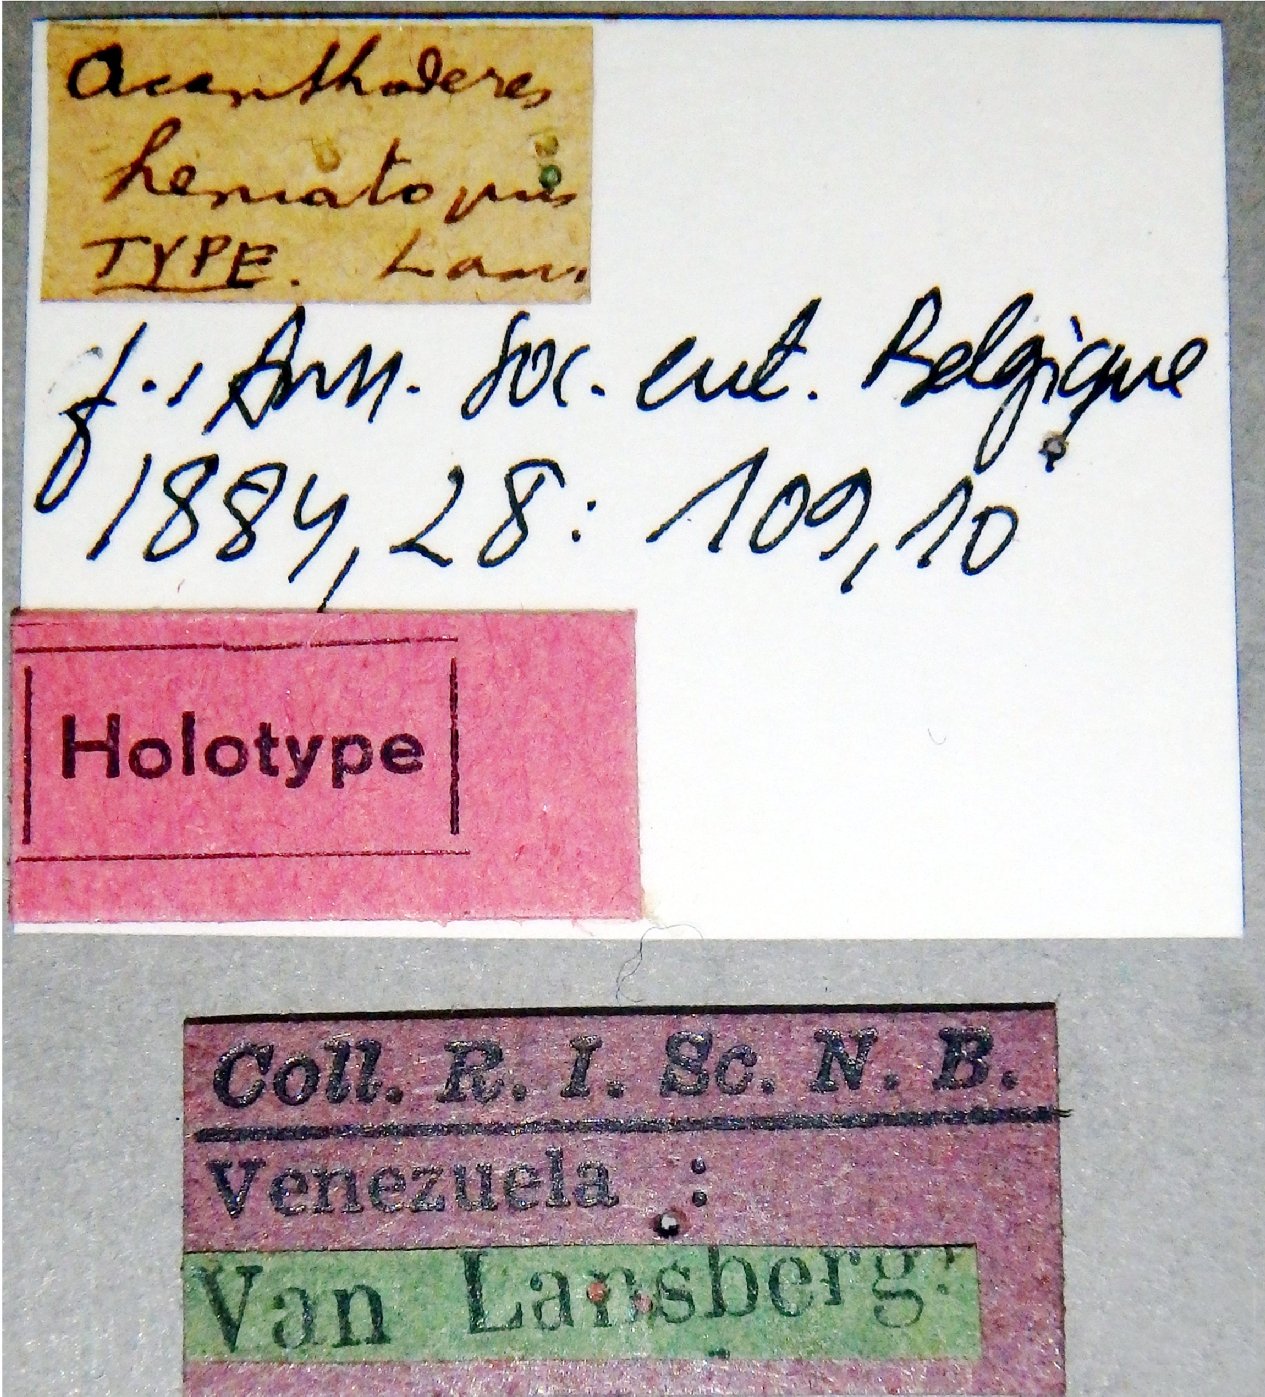 Acanthoderes
hematopus
TYPE. Lans.
f.: Ann. Soc. ent. Belgique
1884, 28: 109, 10
Holotype
Coll. R. I. Sc. N. B.
Venezuela :
Van Lansberg: